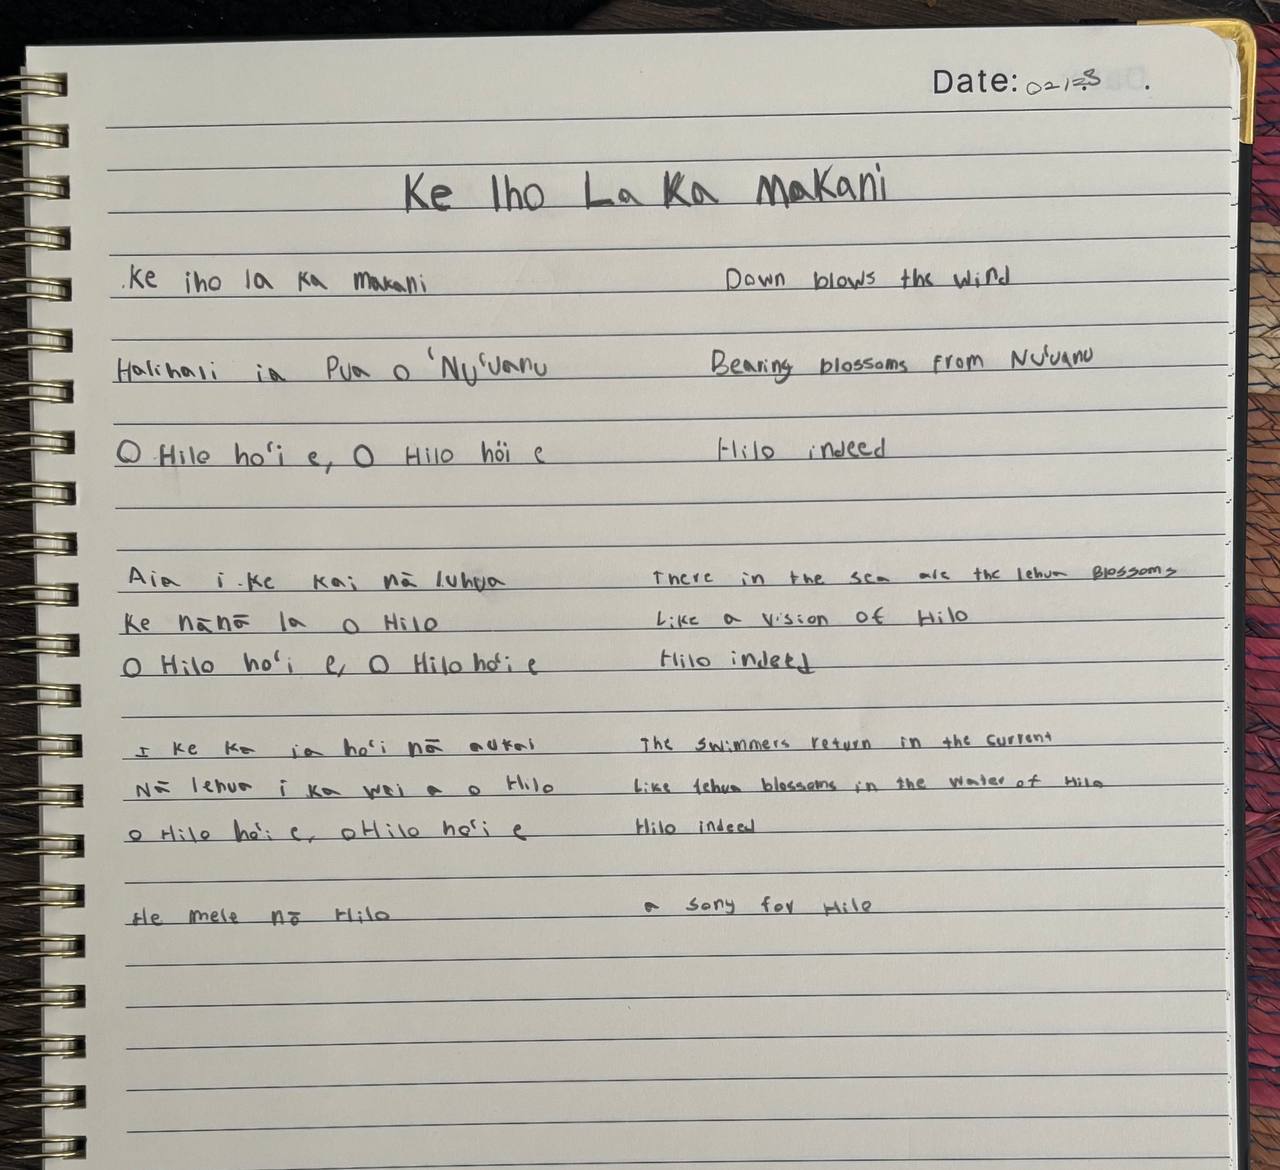 Date:
Ke Iho La Ka Makani
Ke iho la Ka Makani Down blows the wind
Halihali ia Pua o ʻNuʻuanu Bearing blossoms from Nuʻuanu
O Hilo hoʻi e, O Hilo hoʻi e Hilo indeed
Aia i Ke Kai nā luhua There in the sea are the lehua Blossoms
Ke nānā la o Hilo Like a vision of Hilo
O Hilo hoʻi e, O Hilo hoʻi e Hilo indeed
I Ke Ka ia hoʻi nā aukai The swimmers return in the current
Nā lehua i Ka wai a o Hilo Like lehua blossoms in the water of Hilo
O Hilo hoʻi e, O Hilo hoʻi e Hilo indeed
He mele nō Hilo a song for Hilo